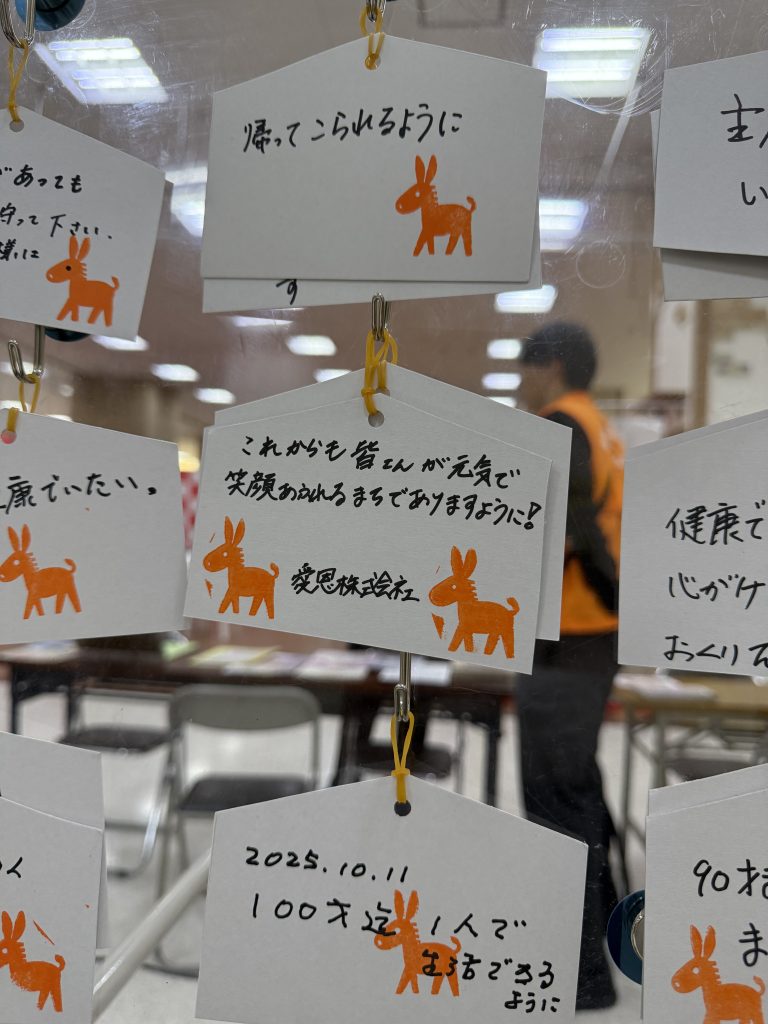 があっても
守って下さい、
様に
帰ってこられるように
す
主人
い
康でいたい。
これからも皆さんが元気で
笑顔あふれるまちでありますように!
愛恩株式会社
健康で
心がけ
おくりた
2025.10.11
100才迄1人で
生活できる
ように
人
90才
ま